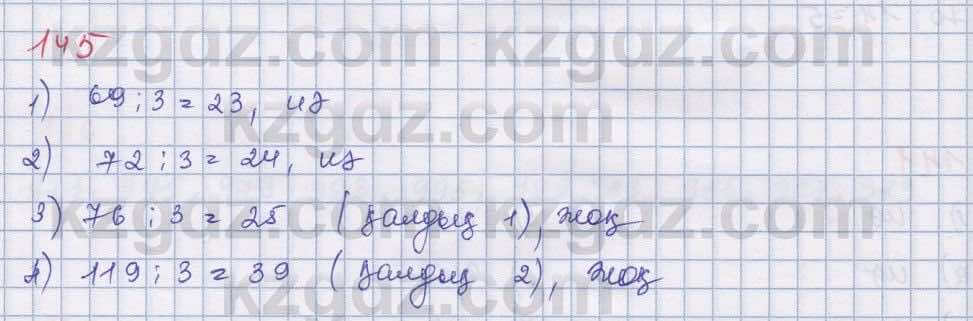 145
1) 69 : 3 = 23, иә
2) 72 : 3 = 24, иә
3) 76 : 3 = 25 (қалдық 1), жоқ
4) 119 : 3 = 39 (қалдық 2), жоқ
kzgdz.com kzgdz.com
kzgdz.com
kzgdz.com kzgdz.com
kzgdz.com